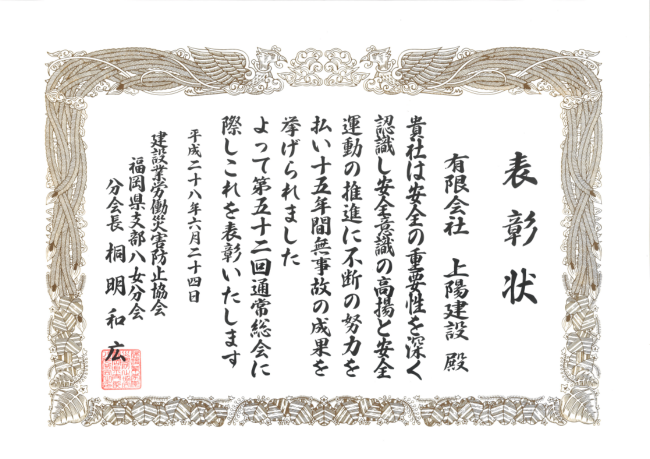 表彰状
有限会社 上陽建設 殿
貴社は安全の重要性を深く
認識し安全意識の高揚と安全
運動の推進に不断の努力を
払い十五年間無事故の成果を
挙げられました
よって第五十二回通常総会に
際しこれを表彰いたします
平成二十八年六月二十四日
建設業労働災害防止協会
福岡県支部八女分会
分会長 桐明和広